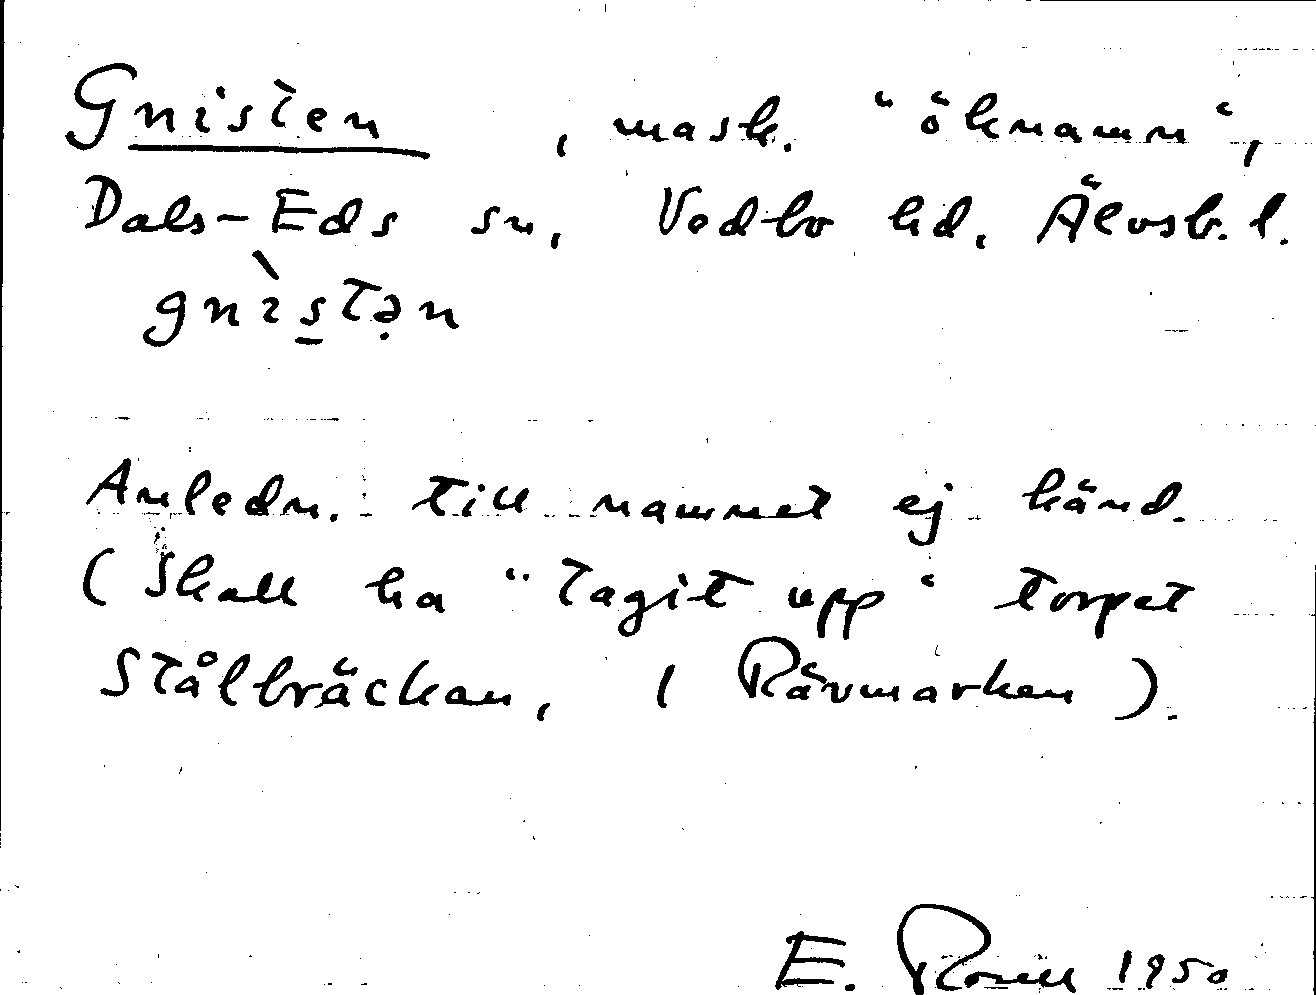 Gnisten, mask. "öknamn",
Dals-Eds sn, Vedbo hd. Älvsb. l.
gnìstən
Anledn. till namnet ej känd.
(Skall ha "tagit upp" torpet
Stålbräckan, (Rävmarken).
E. 1950